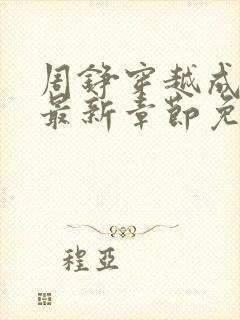 周铮穿越成
最新章节免
程亞